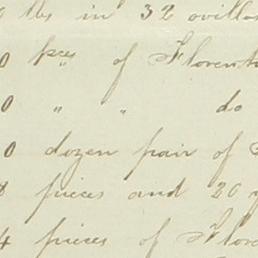 lbs in 32 ovillos
0 pces of Florent
0 " " do
0 dozen pair of
pieces and 20 y
4 pieces of Flore